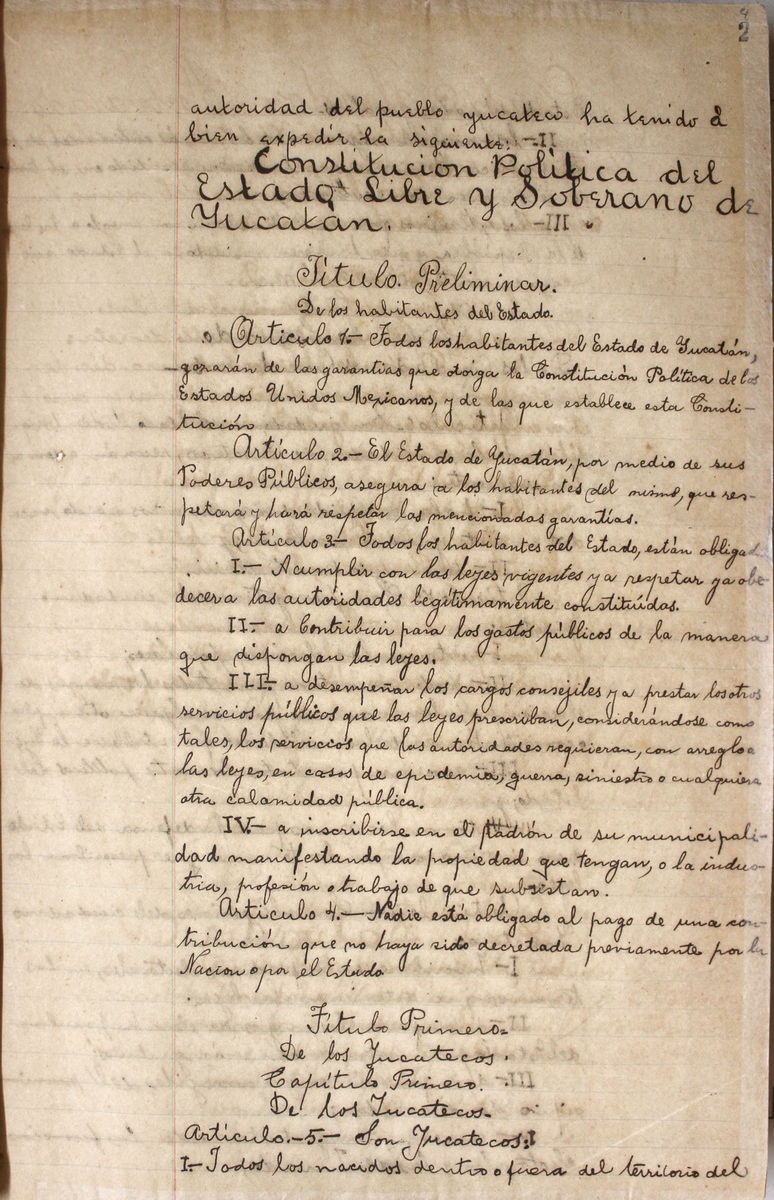 2
autoridad del pueblo yucateco ha tenido á
bien expedir la siguiente:
Constitucion Política del
Estado Libre y Soberano de
Yucatán.
Título Preliminar.
De los habitantes del Estado.
Artículo 1.- Todos los habitantes del Estado de Yucatán,
gozarán de las garantias que otorga la Constitución Politica de los
Estados Unidos Mexicanos, y de las que establece esta Consti-
tución
Artículo 2.- El Estado de Yucatán, por medio de sus
Poderes Públicos, asegura a los habitantes del mismo, que res-
petará y hará respetar las mencionadas garantías.
Artículo 3- Todos los habitantes del Estado, están obligad
I.- A cumplir con las leyes vigentes y a respetar y a obe-
decer a las autoridades legitimamente constituídas.
II.- a Contribuir para los gastos públicos de la manera
que dispongan las leyes.
III.- a desempeñar los cargos consejiles y a prestar los otros
servicios públicos que las leyes prescriban, considerándose como
tales, los servicios que las autoridades requieran, con arreglo a
las leyes, en casos de epidemia, guerra, siniestro o cualquiera
otra calamidad pública.
IV.- a inscribirse en el padrón de su municipali-
dad manifestando la propiedad que tengan, o la indus-
tria, profesión o trabajo de que subsistan.
Artículo 4.- Nadie está obligado al pago de una con-
tribución que no haya sido decretada previamente por la
Nacion o por el Estado
Título Primero-
De los Yucatecos.
Capítulo Primero.
De los Yucatecos-
Artículo.-5.- Son Yucatecos:
I.- Todos los nacidos dentro o fuera del territorio del